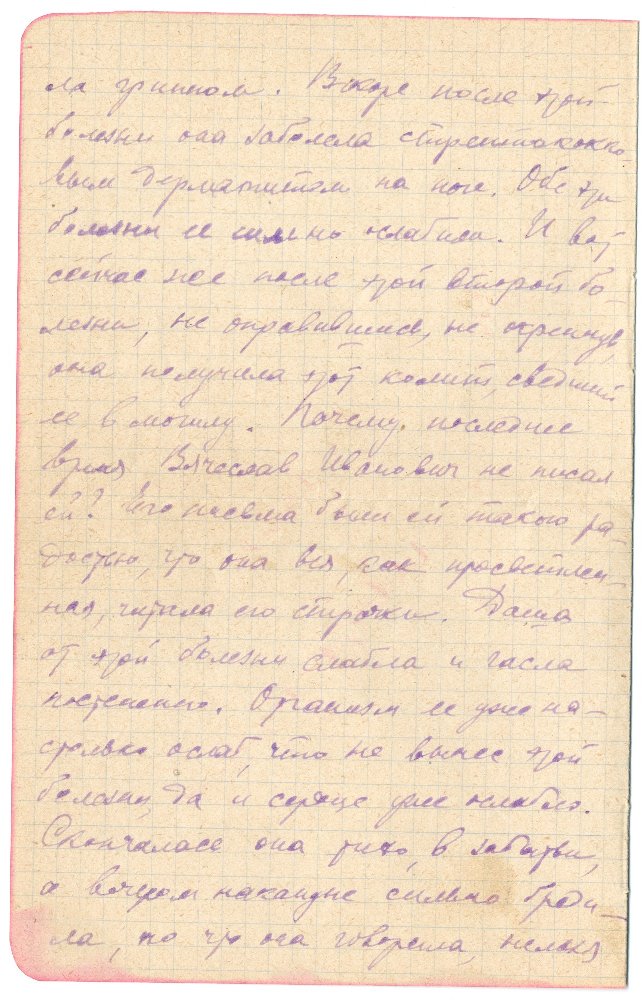 ла гриппом. Вскоре после этой
болезни она заболела стрептококко-
вым дерматитом на ноге. Обе эти
болезни ее сильно ослабили. И вот
сейчас же после этой второй бо-
лезни, не оправившись, не окрепнув,
она получила этот колит, сведший
ее в могилу. Почему последнее
время Вячеслав Иванович не писал
ей? Его письма были ей такою ра-
достью, что она вся, как просветлен-
ная, читала его строчки. Даша
от этой болезни слабла и гасла
постепенно. Организм ее уже на-
столько ослаб, что не вынес этой
болезни, да и сердце уже ослабло.
Скончалась она тихо, в забытьи,
а вечером накануне сильно бреди-
ла, но что она говорила, нельзя